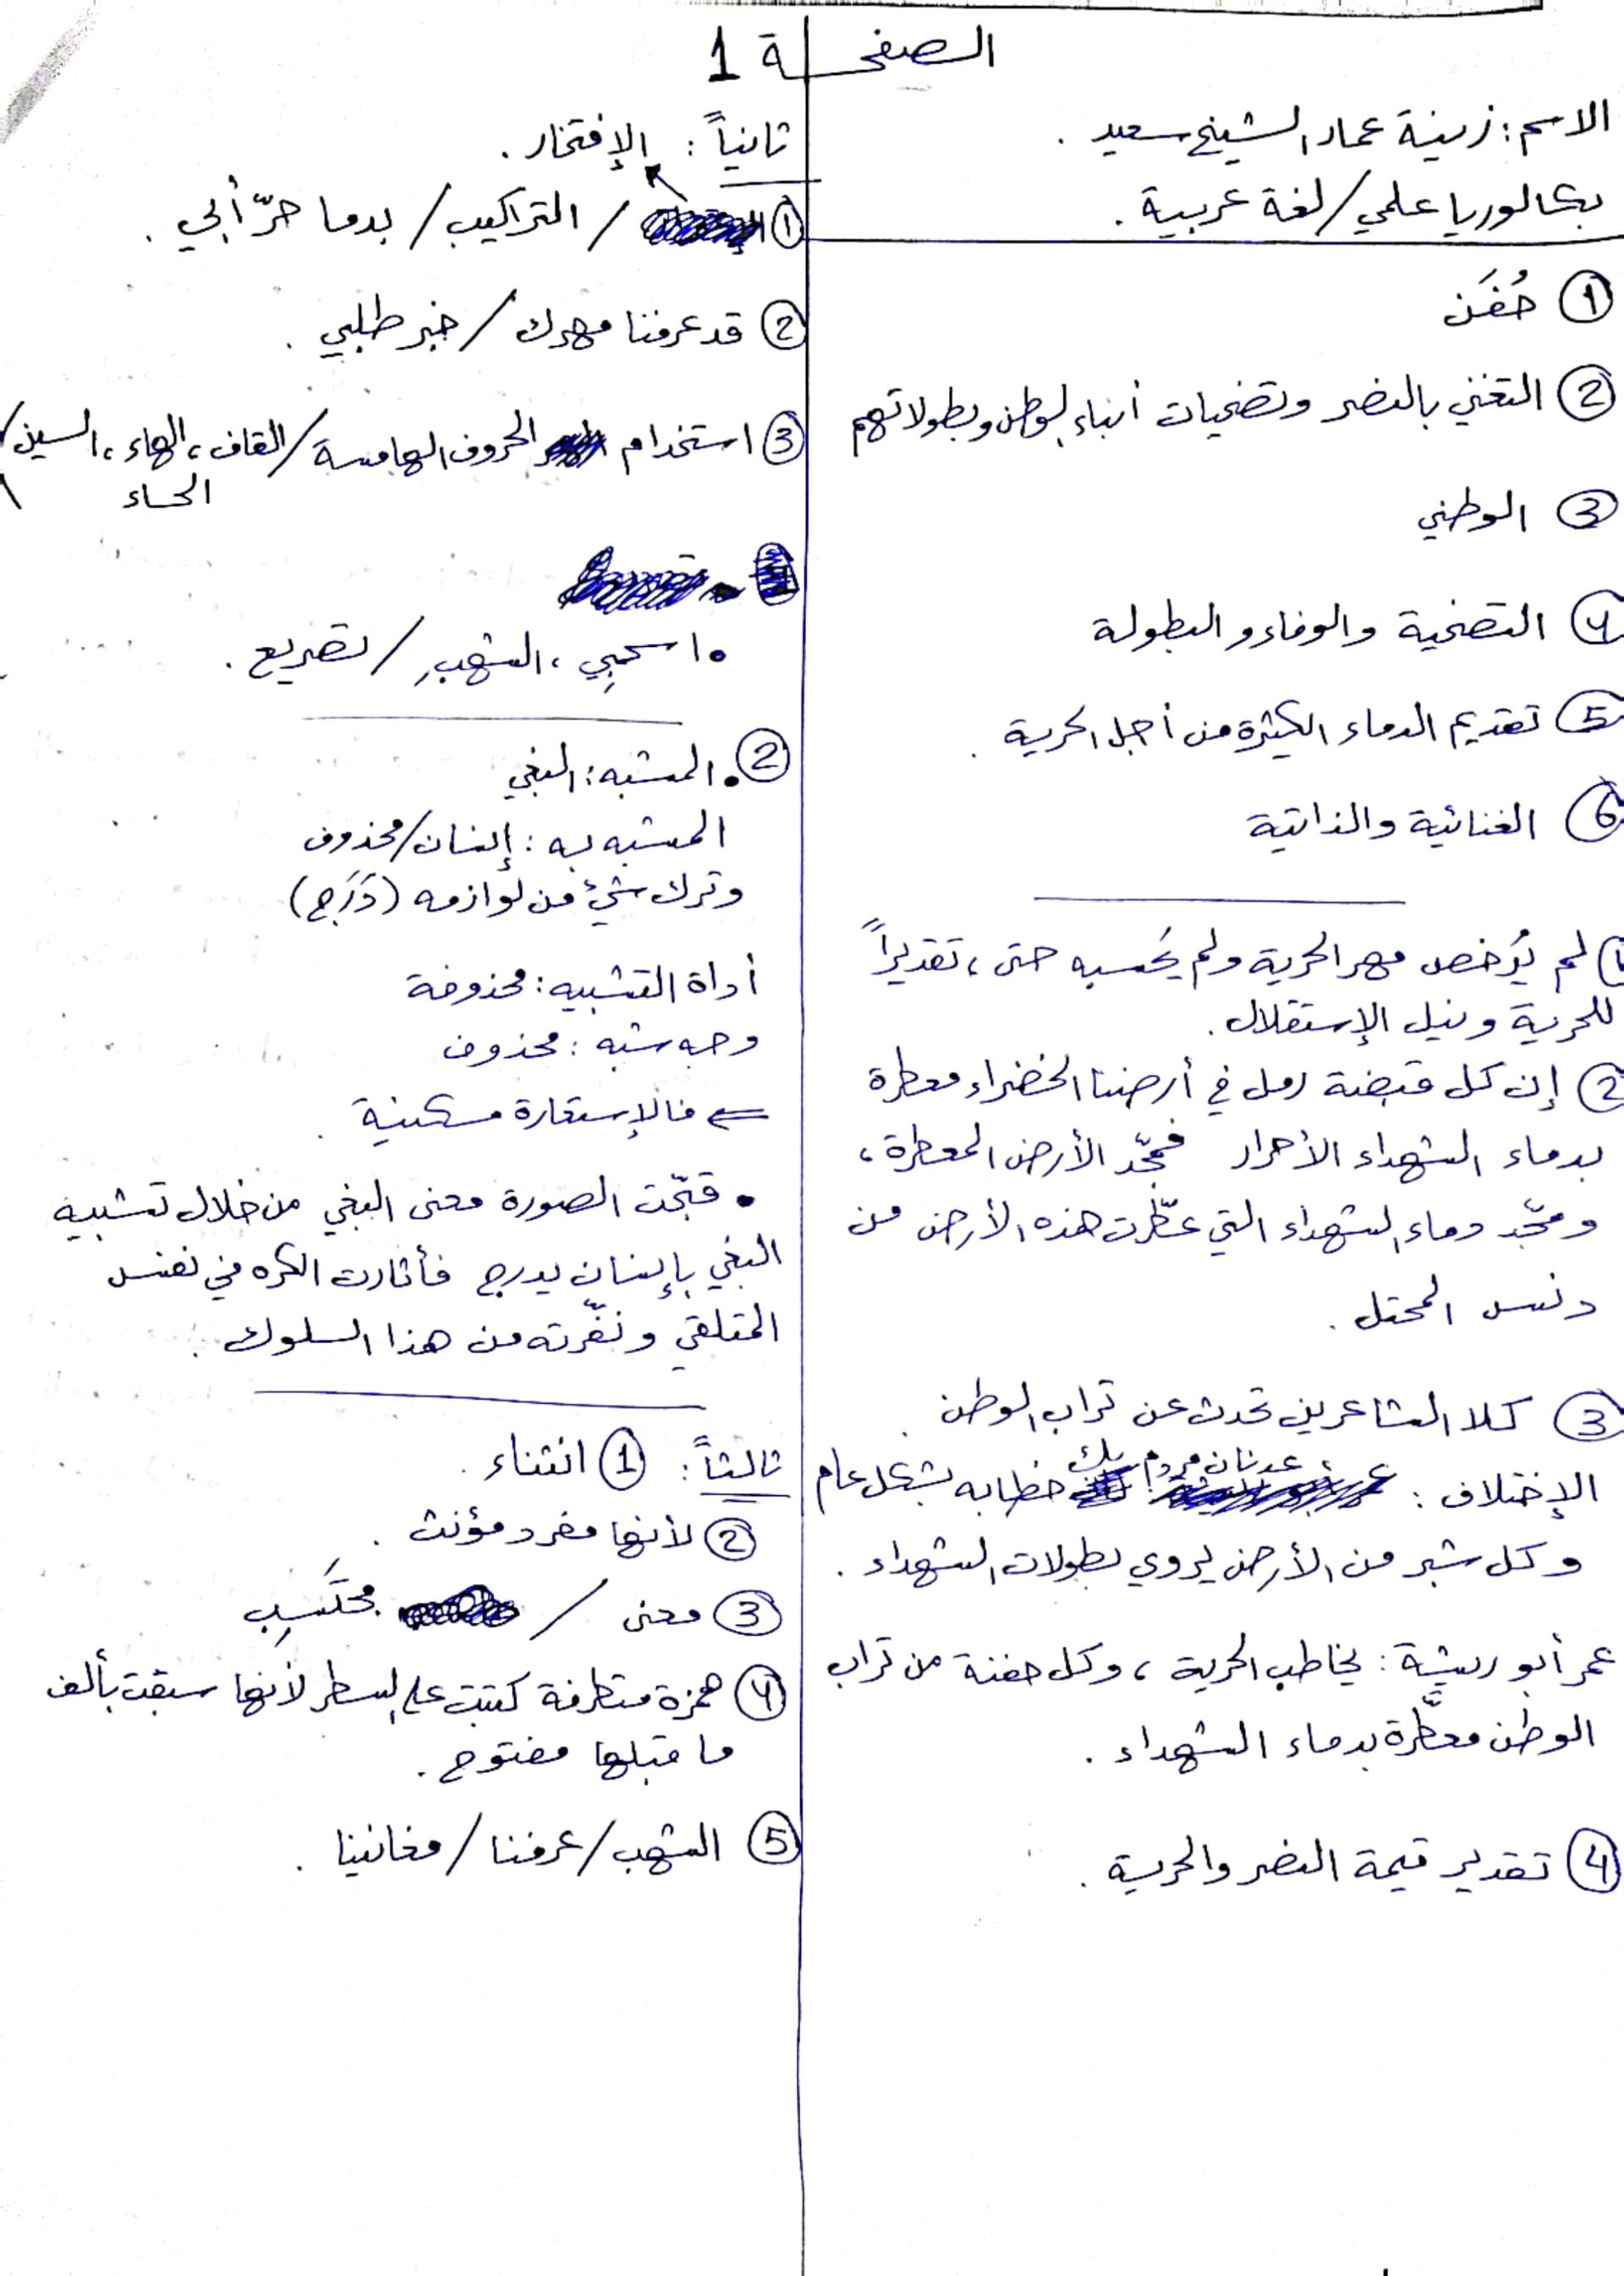 الصفحة 1
الاسم: زينة عماد الشيخ سعيد.
بكالوريا علمي/لغة عربية.
① حُفَن
② التغني بالنصر وتضحيات أبناء الوطن وبطولاتهم
③ الوطني
④ التضحية والوفاء والبطولة
⑤ تقديم الدماء الكثيرة من أجل الحرية.
⑥ الغنائية والذاتية
① لم يُرخص مهر الحرية ولم يحسبه حتى، تقديراً
للحرية ونيل الإستقلال.
② إن كل قبضة رمل في أرضنا الخضراء معطرة
بدماء الشهداء الأحرار فمجّد الأرض المعطرة،
ومجّد دماء الشهداء التي عطّرت هذه الأرض من
دنس المحتل.
③ كلا الشاعرين تحدث عن تراب الوطن.
الإختلاف: عدنان مردم بك خطابه بشكل عام
وكل شبر من الأرض يروي بطولات الشهداء.
عمر أبو ريشة: يخاطب الحرية، وكل حفنة من تراب
الوطن معطّرة بدماء الشهداء.
④ تقدير قيمة النصر والحرية.
ثانياً: الإفتخار.
① / التراكيب/ بدما حرّ أبي.
② قد عرفنا مهرك/ خبر طلبي.
③ استخدام الحروف الهامسة/القاف، الهاء، السين/
الحاء \
• اسحبي، الشهبِ/ تصريع.
② • المشبه: البغي
المشبه به: إنسان/محذوف
وترك شيئ من لوازمه (دَرَج)
أداة التشبيه: محذوفة
وجه شبه: محذوف
⇐ فالإستعارة مكنية.
• قبّحت الصورة معنى البغي من خلال تشبيه
البغي بإنسان يدرج فأثارت الكره في نفس
المتلقي ونفّرته من هذا السلوك.
ثالثاً: ① انثناء.
② لأنها مفرد مؤنث.
③ معنى / محتَسِب
④ همزة متطرفة كتبت على السطر لأنها سبقت بألف
ما قبلها مفتوح.
⑤ الشهب/عرفنا/مغانينا.